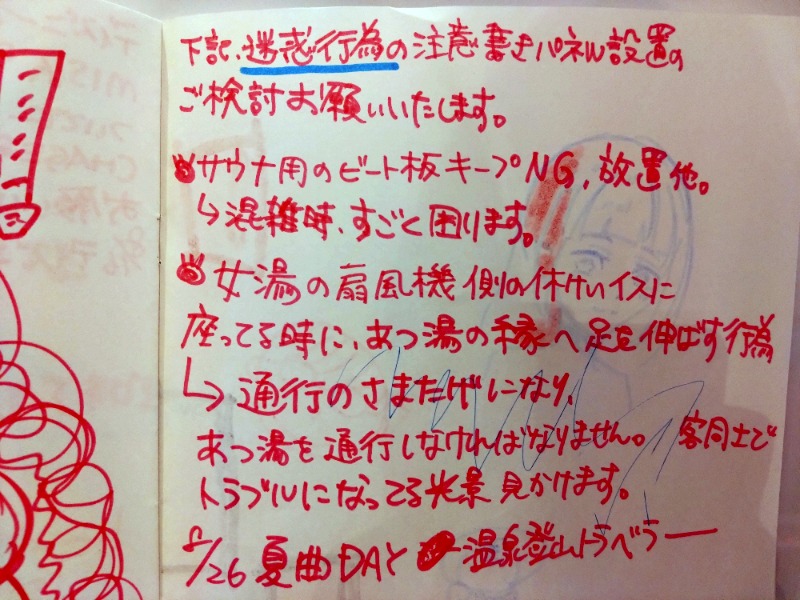 下記、迷惑行為の注意書きパネル設置の
ご検討お願いいたします。
サウナ用のビート板キープNG、放置他。
↳混雑時、すごく困ります。
女湯の扇風機側の休けいイスに
座ってる時に、あつ湯の縁へ足を伸ばす行為
↳通行のさまたげになり、
あつ湯を通行しなければなりません。客同士で
トラブルになってる光景見かけます。
8/26 夏曲DAY 温泉登山トラベラー